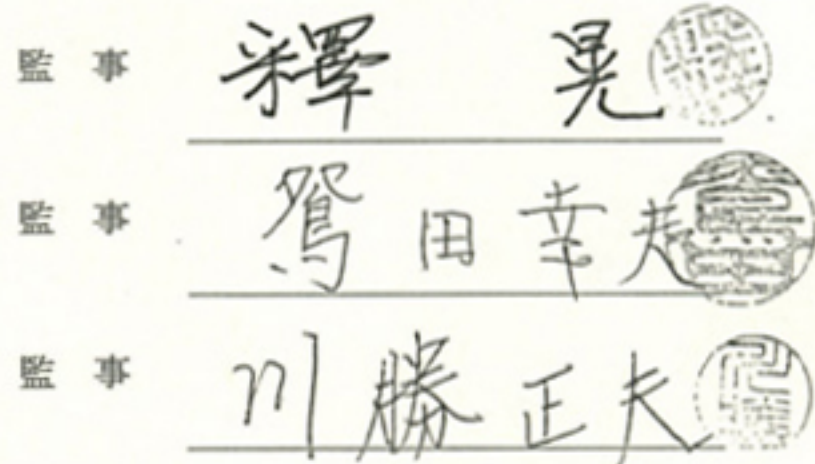 監事 釋 晃
監事 鴛田幸夫
監事 川勝正夫